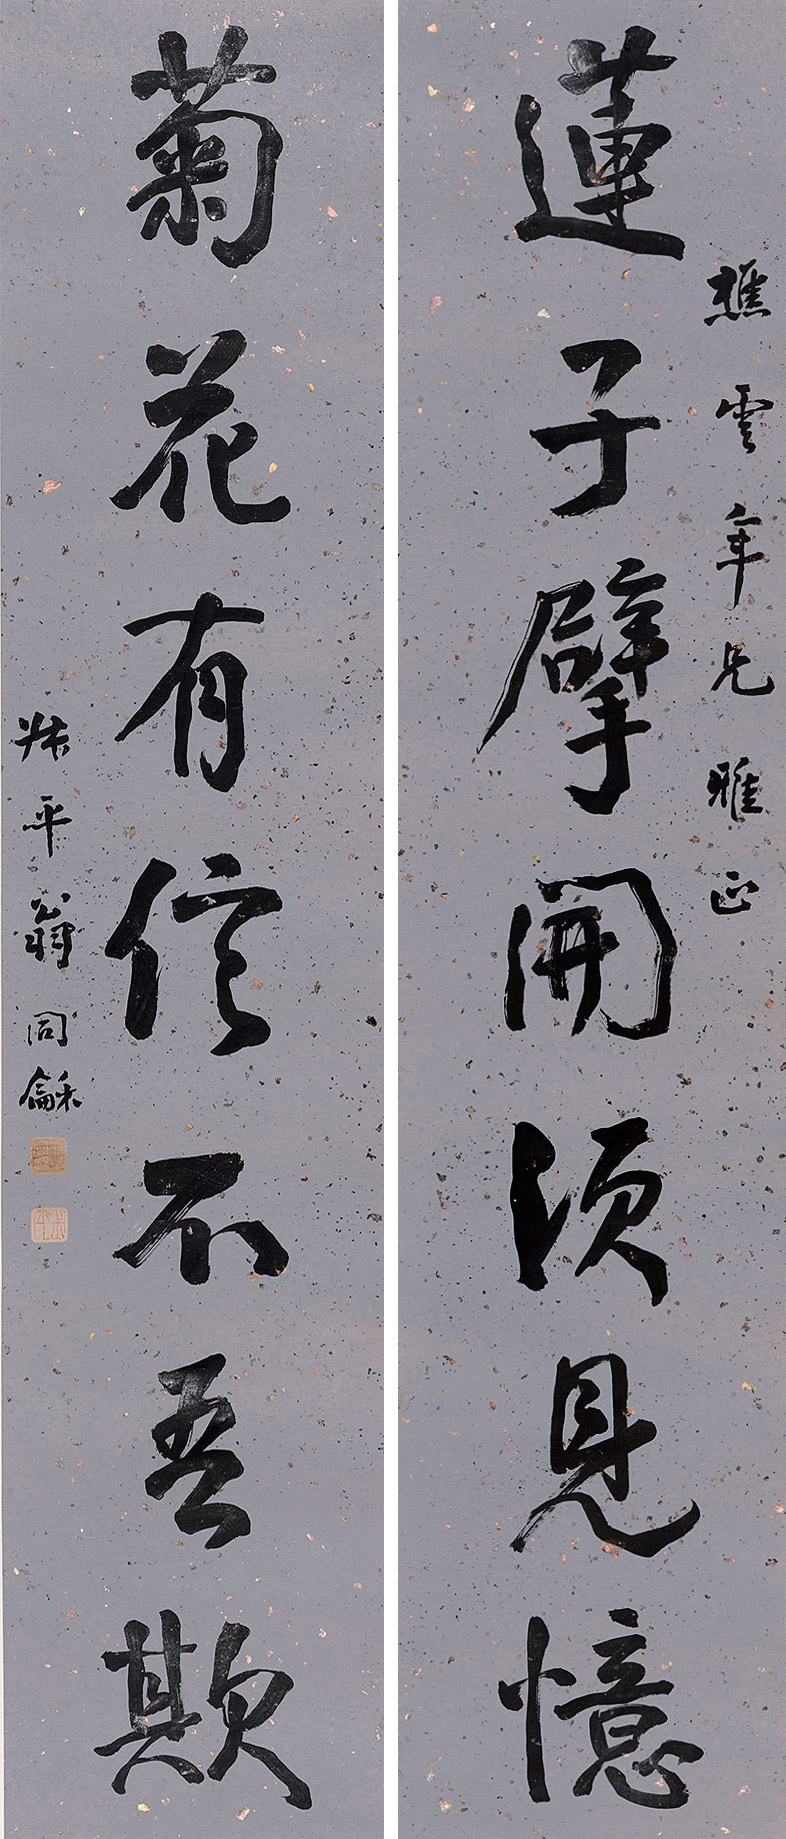 樵雲年兄雅正
蓮子擘開須見憶
菊花有信不吾欺
叔平翁同龢